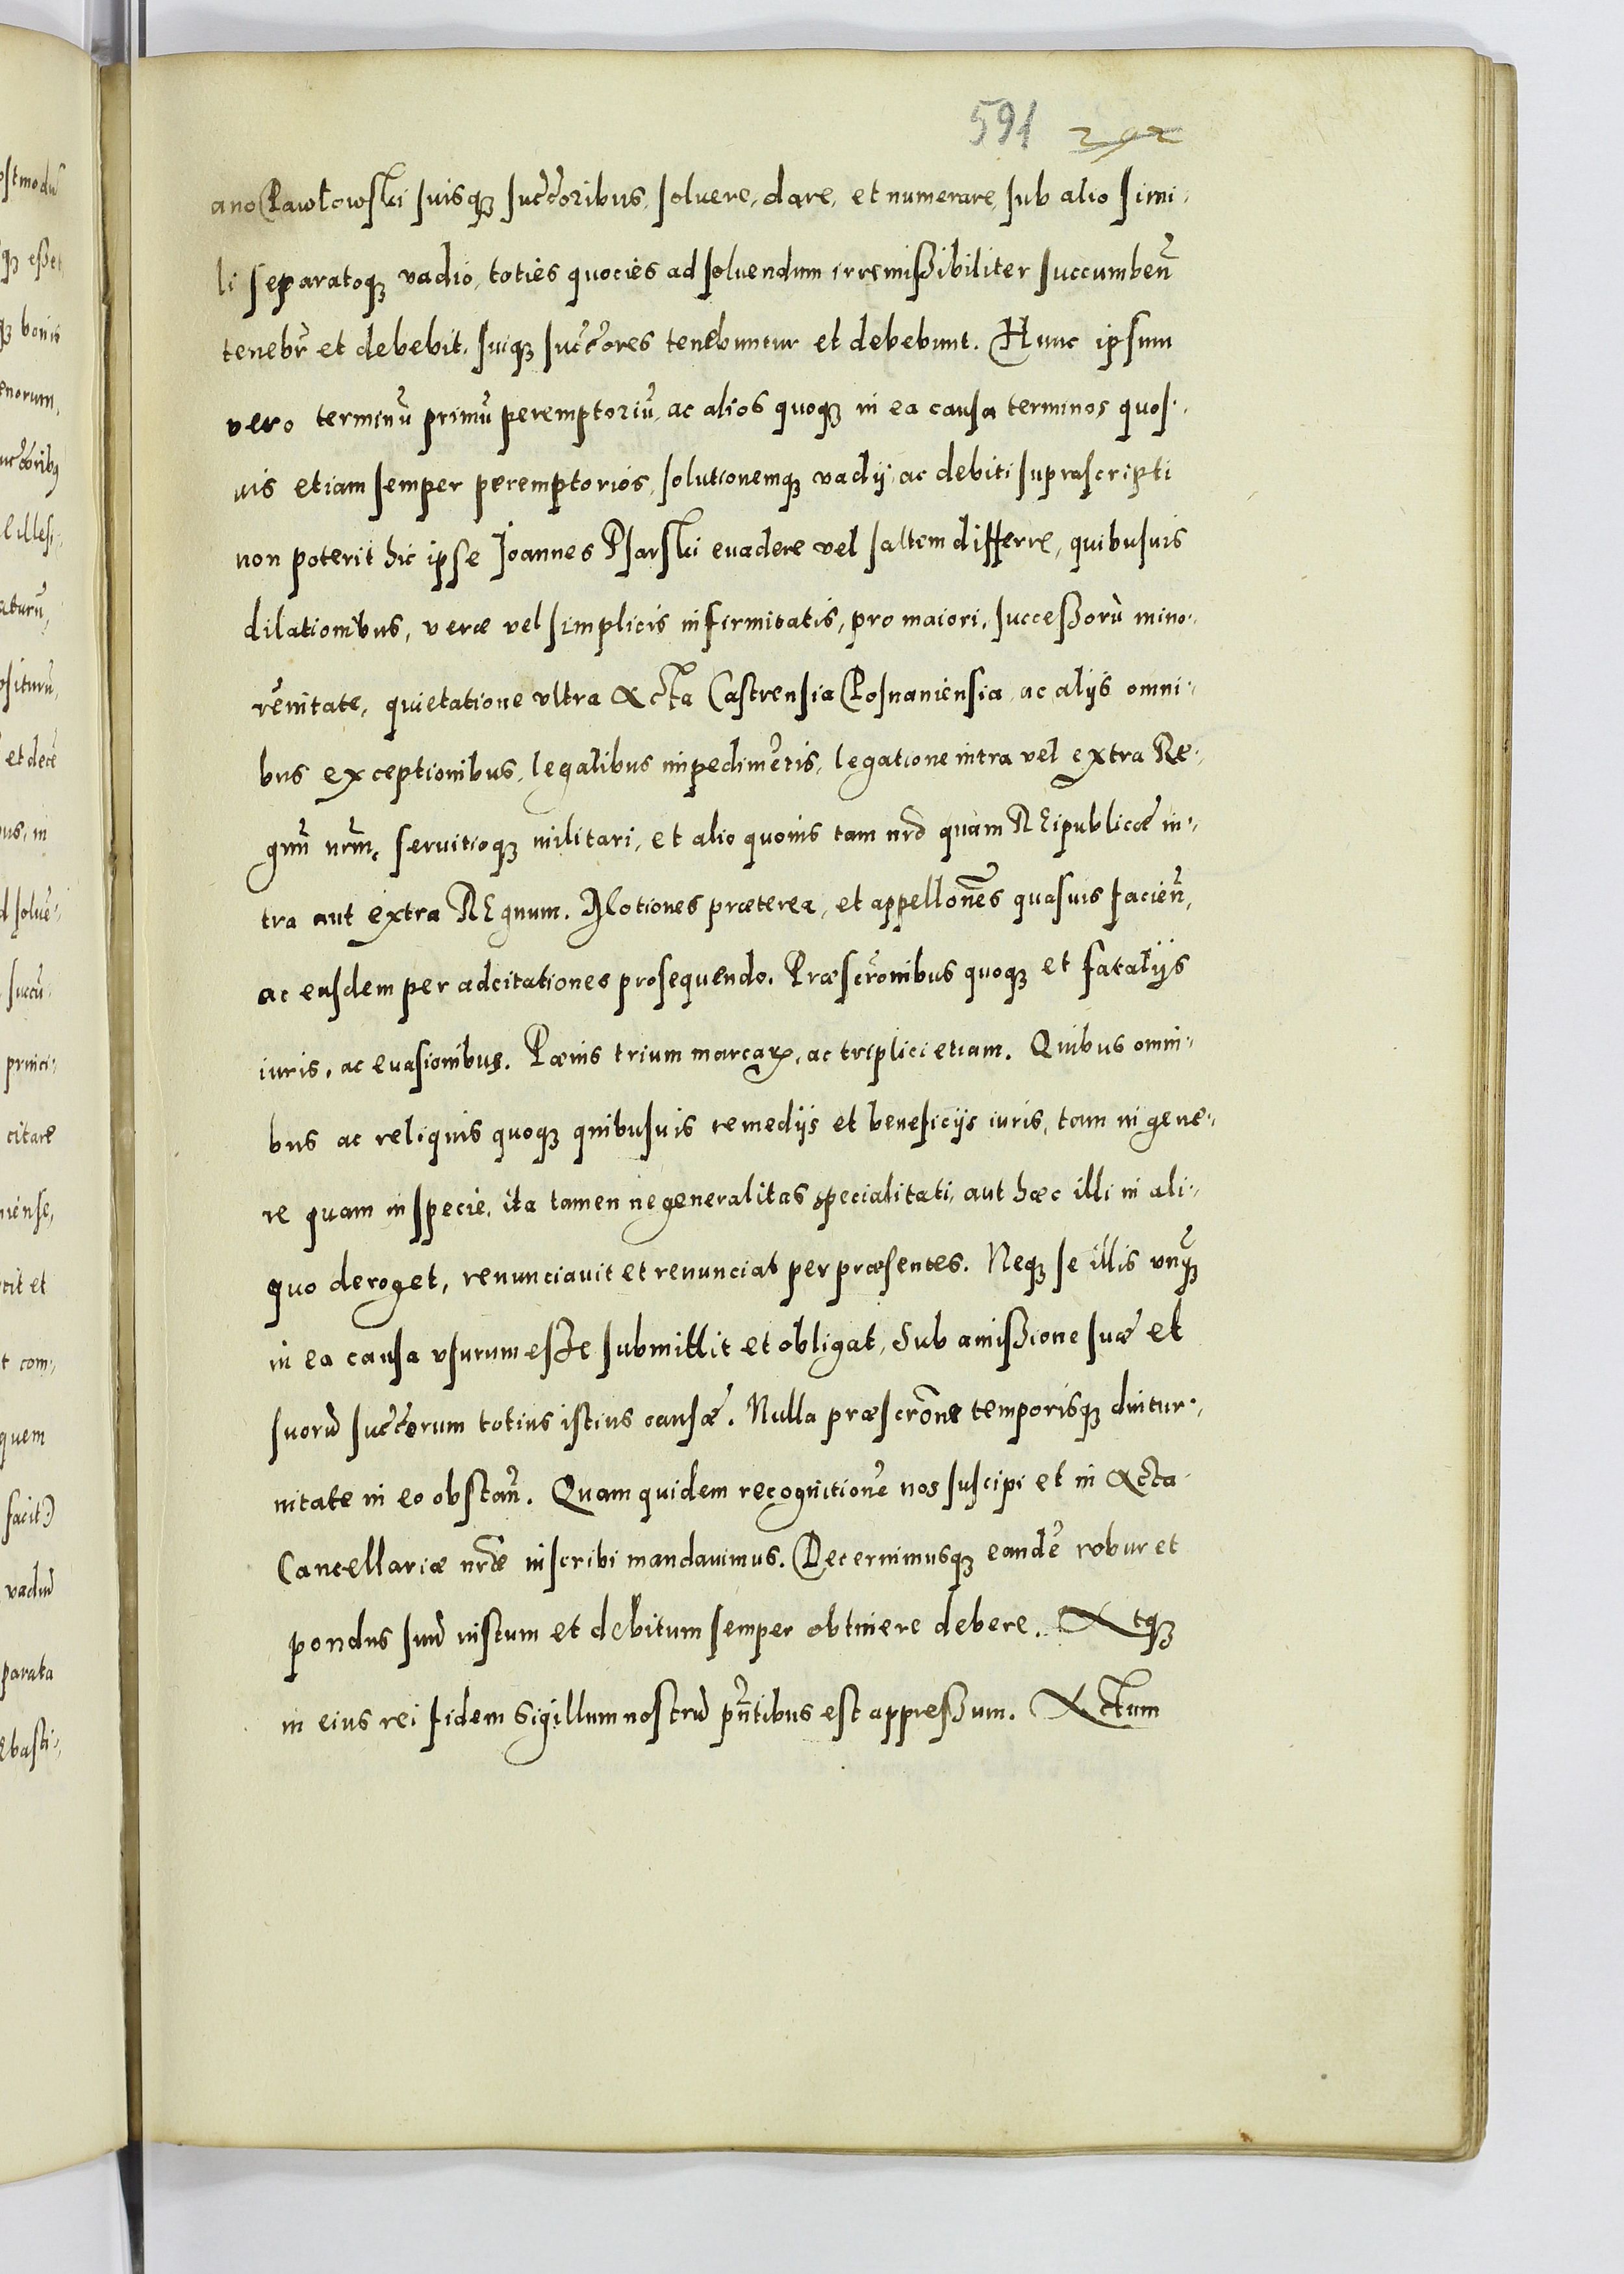 591 292
ano Pawłowski suisqꝫ succ̃oribus, soluere, dare, et numerare, sub alio simi⸗
li separatoqꝫ vadio, toties quocies ad soluendum irremißibiliter succumben̄
tenebr̃ et debebit. suiqꝫ succ̃ores tenebuntur et debebunt. Hunc ipsum
vero terminū primū peremptoriū, ac alios quoqꝫ in ea causa terminos quos⸗
uis etiam semper peremptorios, solutionemqꝫ vadij, ac debiti suprascripti
non poterit hic ipse Joannes Psarski euadere vel saltem differre, quibusuis
dilationibus, veræ vel simplicis infirmitatis, pro maiori, succeßorū mino⸗
rēnitate, quietatione vltra Acta Castrensia Posnaniensia, ac alijs omni⸗
bus exceptionibus, legalibus impedimētis, legatione intra vel extra Re⸗
gnū nrm̄, seruitioqꝫ militari, et alio quouis tam nrō quam REipublicæ in⸗
tra aut extra REgnum. Motiones præterea, et appellon̄es quasuis facien̄,
ac easdem per adcitationes prosequendo. Præscrōnibus quoqꝫ et fatalijs
iuris, ac euasionibus. Pænis trium marcaꝝ, ac triplici etiam. Quibus omni⸗
bus ac reliquis quoqꝫ quibusuis remedijs et beneficijs iuris, tam in gene⸗
re quam in specie, ita tamen ne generalitas specialitati, aut hæc illi in ali⸗
quo deroget, renunciauit et renunciat per præsentes. Neqꝫ se illis vnq̄ꝫ
in ea causa vsurum eße submittit et obligat, Sub amißione suæ et
suorū succ̃orum totius istius causæ. Nulla præscrōne temporisqꝫ diutur⸗
nitate in eo obstan̄. Quam quidem recognitionē nos suscipi et in Acta
Cancellariæ nrǣ inscribi mandauimus. Decernimusqꝫ eandē robur et
pondus suū iustum et debitum semper obtinere debere. Atqꝫ
in eius rei fidem Sigillum nostrū pn̄tibus est appreßum. Actum